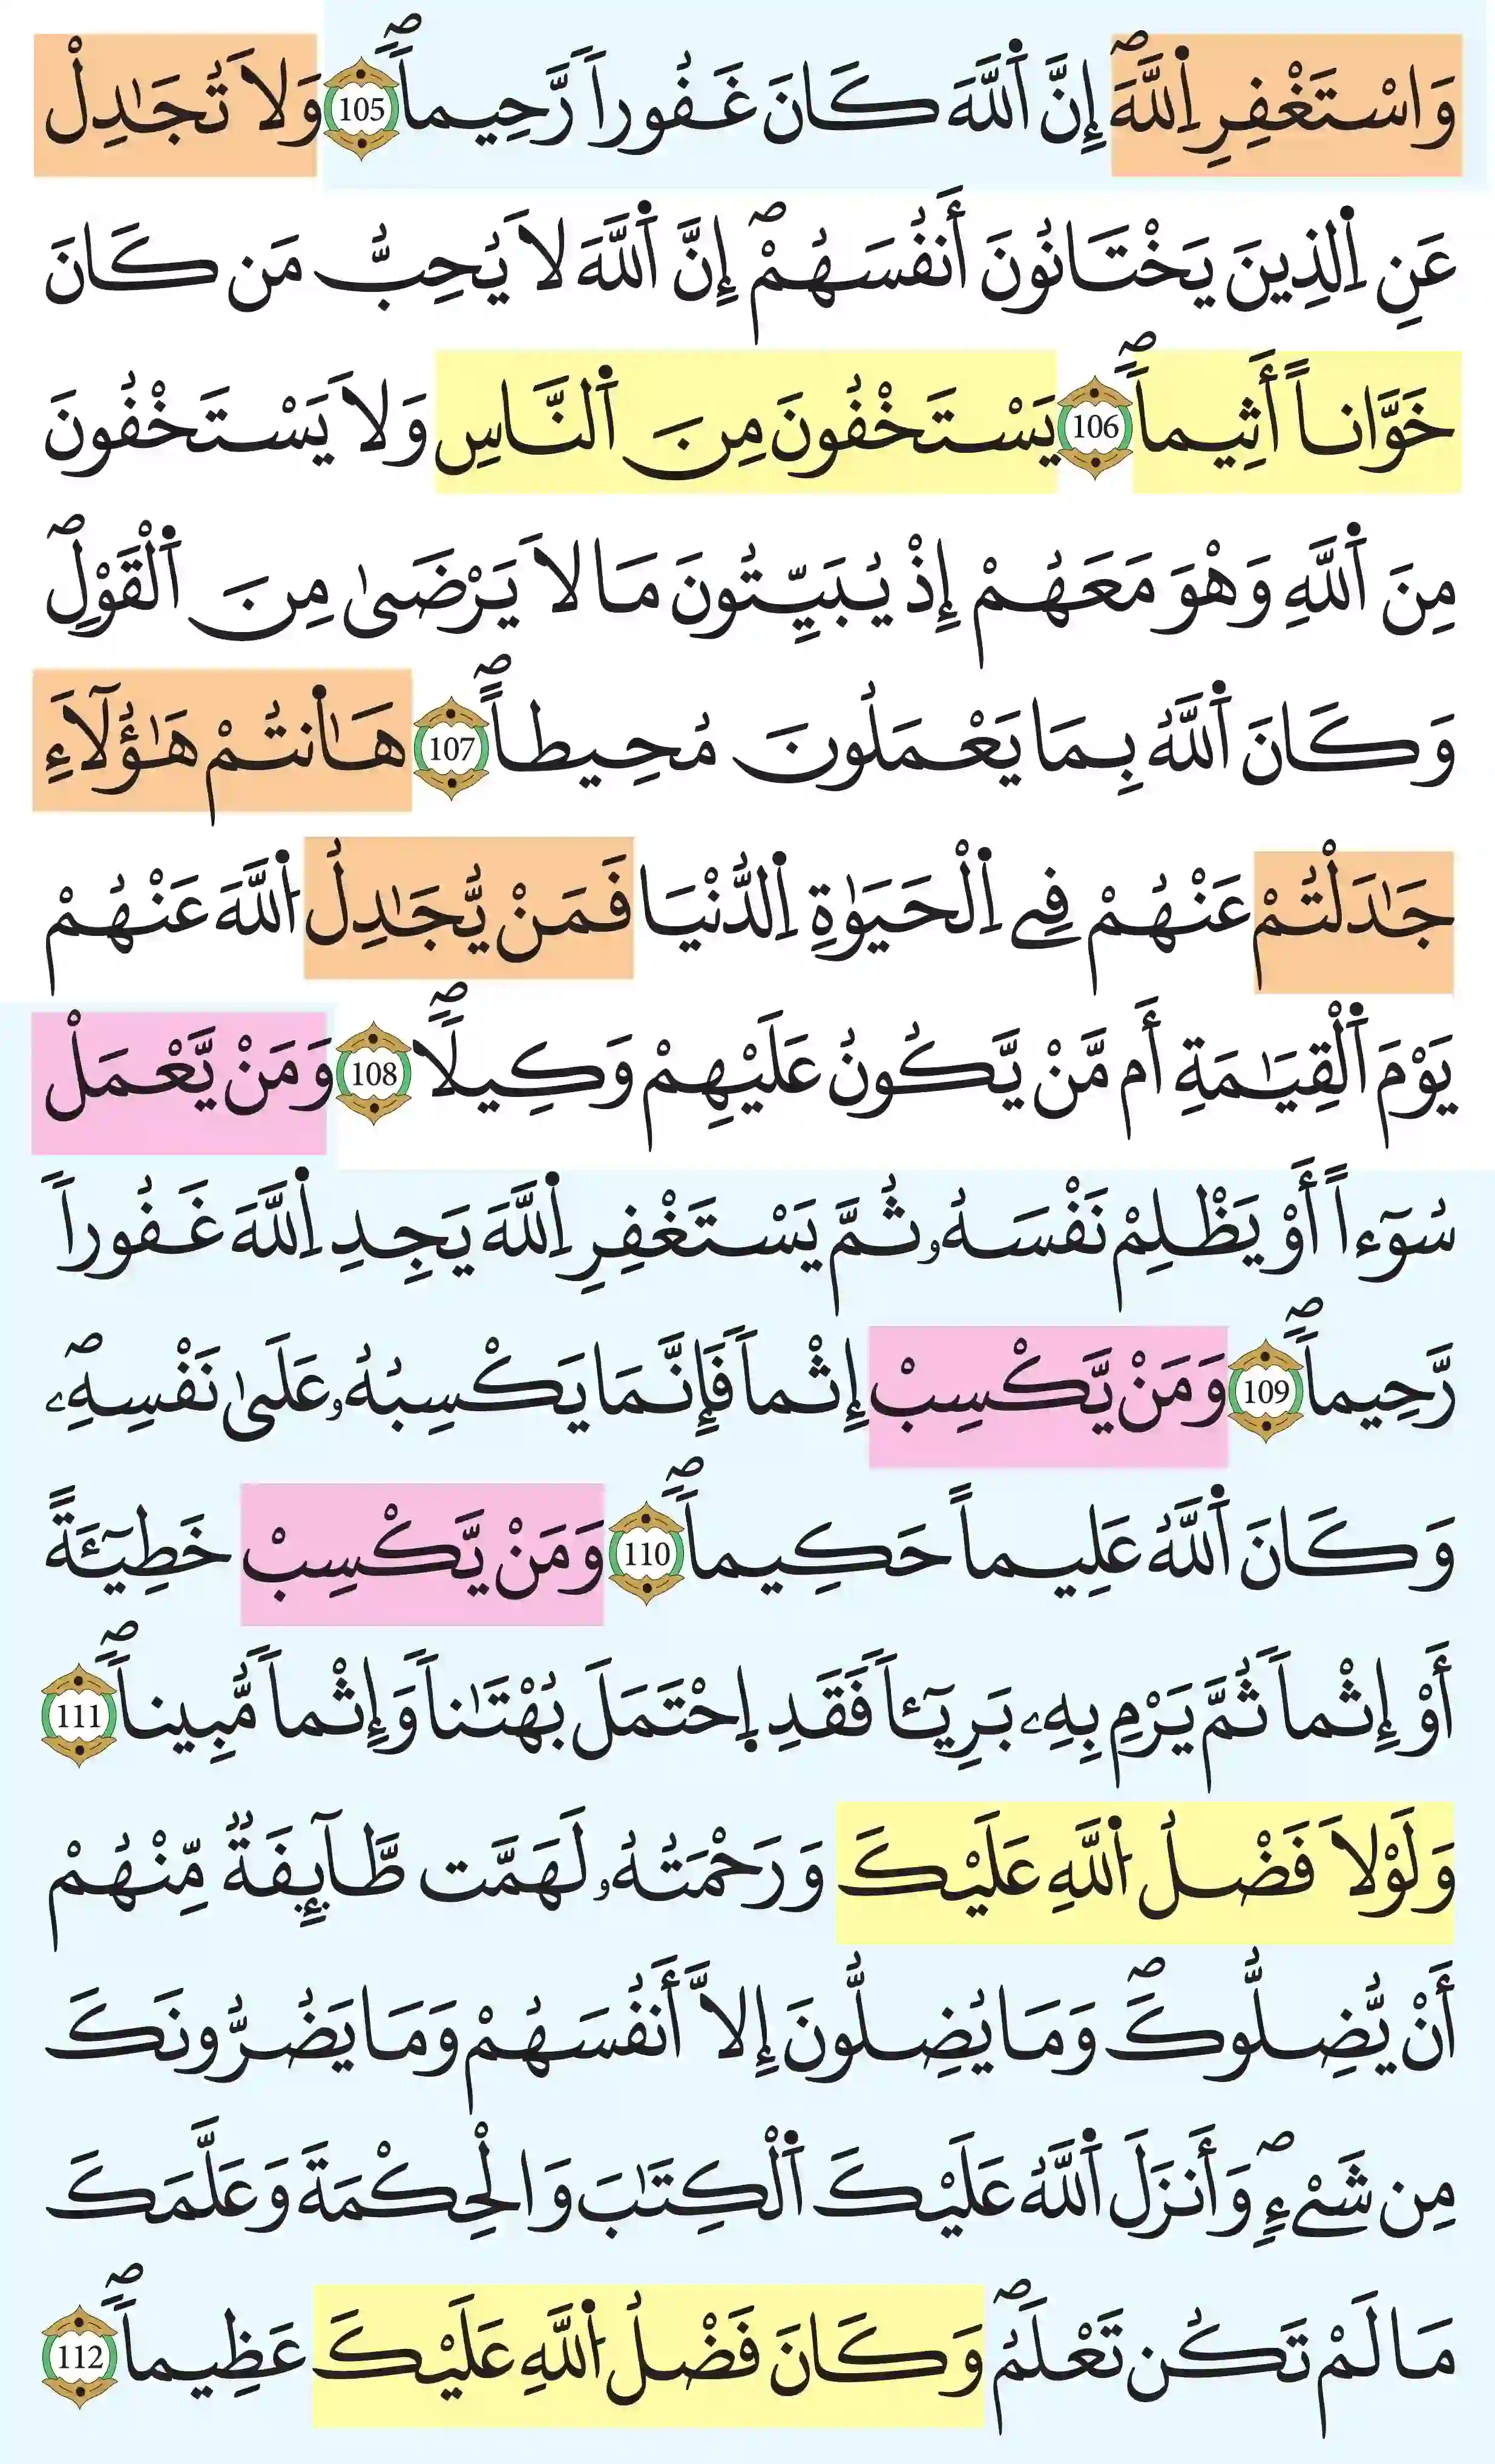 وَاسْتَغْفِرِ اِ۬للَّهَۖ إِنَّ اَ۬للَّهَ كَانَ غَفُوراٗ رَّحِيماٗۖ 105 وَلَا تُجَٰدِلْ
عَنِ اِ۬لذِينَ يَخْتَانُونَ أَنفُسَهُمْۖ إِنَّ اَ۬للَّهَ لَا يُحِبُّ مَن كَانَ
خَوَّاناً أَثِيماٗۖ 106 يَسْتَخْفُونَ مِنَ اَ۬لنَّاسِ وَلَا يَسْتَخْفُونَ
مِنَ اَ۬للَّهِ وَهْوَ مَعَهُمْ إِذْ يُبَيِّتُونَ مَا لَا يَرْضَىٰ مِنَ اَ۬لْقَوْلِۖ
وَكَانَ اَ۬للَّهُ بِمَا يَعْمَلُونَ مُحِيطاًۖ 107 هَٰٓأَنتُمْ هَٰؤُلَآءِ
جَٰدَلْتُمْ عَنْهُمْ فِے اِ۬لْحَيَوٰةِ اِ۬لدُّنْيَا فَمَنْ يُّجَٰدِلُ اُ۬للَّهَ عَنْهُمْ
يَوْمَ اَ۬لْقِيَٰمَةِ أَم مَّنْ يَّكُونُ عَلَيْهِمْ وَكِيلاٗۖ 108 وَمَنْ يَّعْمَلْ
سُوٓءاً أَوْ يَظْلِمْ نَفْسَهُۥ ثُمَّ يَسْتَغْفِرِ اِ۬للَّهَ يَجِدِ اِ۬للَّهَ غَفُوراٗ
رَّحِيماٗۖ 109 وَمَنْ يَّكْسِبْ إِثْماٗ فَإِنَّمَا يَكْسِبُهُۥ عَلَىٰ نَفْسِهِۦۖ
وَكَانَ اَ۬للَّهُ عَلِيماً حَكِيماٗۖ 110 وَمَنْ يَّكْسِبْ خَطِيٓـَٔةً
أَوْ إِثْماٗ ثُمَّ يَرْمِ بِهِۦ بَرِيٓـٔاٗ فَقَدِ اِ۪حْتَمَلَ بُهْتَٰناٗ وَإِثْماٗ مُّبِيناٗۖ 111
وَلَوْلَا فَضْلُ اُ۬للَّهِ عَلَيْكَ وَرَحْمَتُهُۥ لَهَمَّت طَّآئِفَةٞ مِّنْهُمْ
أَنْ يُّضِلُّوكَۖ وَمَا يُضِلُّونَ إِلَّا أَنفُسَهُمْ وَمَا يَضُرُّونَكَ
مِن شَےْءٖۖ وَأَنزَلَ اَ۬للَّهُ عَلَيْكَ اَ۬لْكِتَٰبَ وَالْحِكْمَةَ وَعَلَّمَكَ
مَا لَمْ تَكُن تَعْلَمُۖ وَكَانَ فَضْلُ اُ۬للَّهِ عَلَيْكَ عَظِيماٗۖ 112